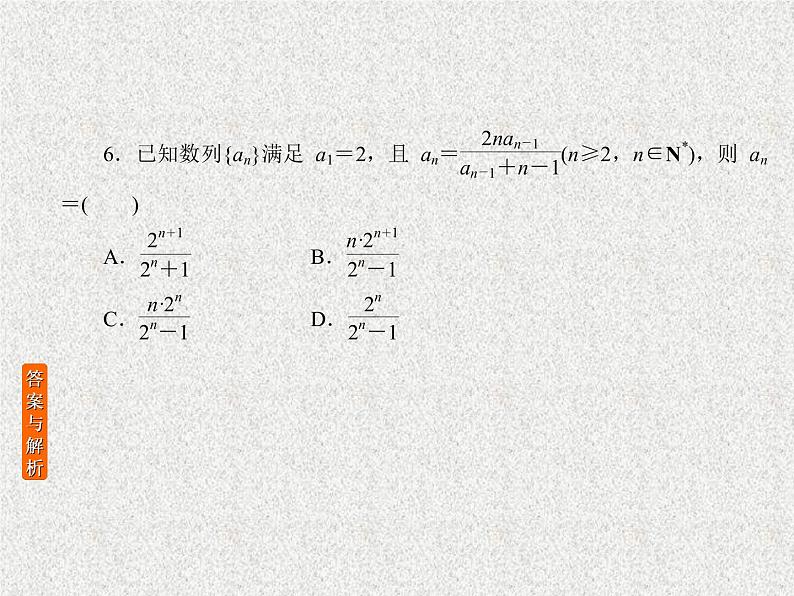 6．已知数列{aₙ}满足 a₁＝2，且 aₙ＝2naₙ₋₁/(aₙ₋₁＋n－1)(n≥2，n∈N*)，则 aₙ
＝(　　)
A．2ⁿ⁺¹/(2ⁿ＋1)　　B．n·2ⁿ⁺¹/(2ⁿ－1)
C．n·2ⁿ/(2ⁿ－1)　　D．2ⁿ/(2ⁿ－1)
答案与解析